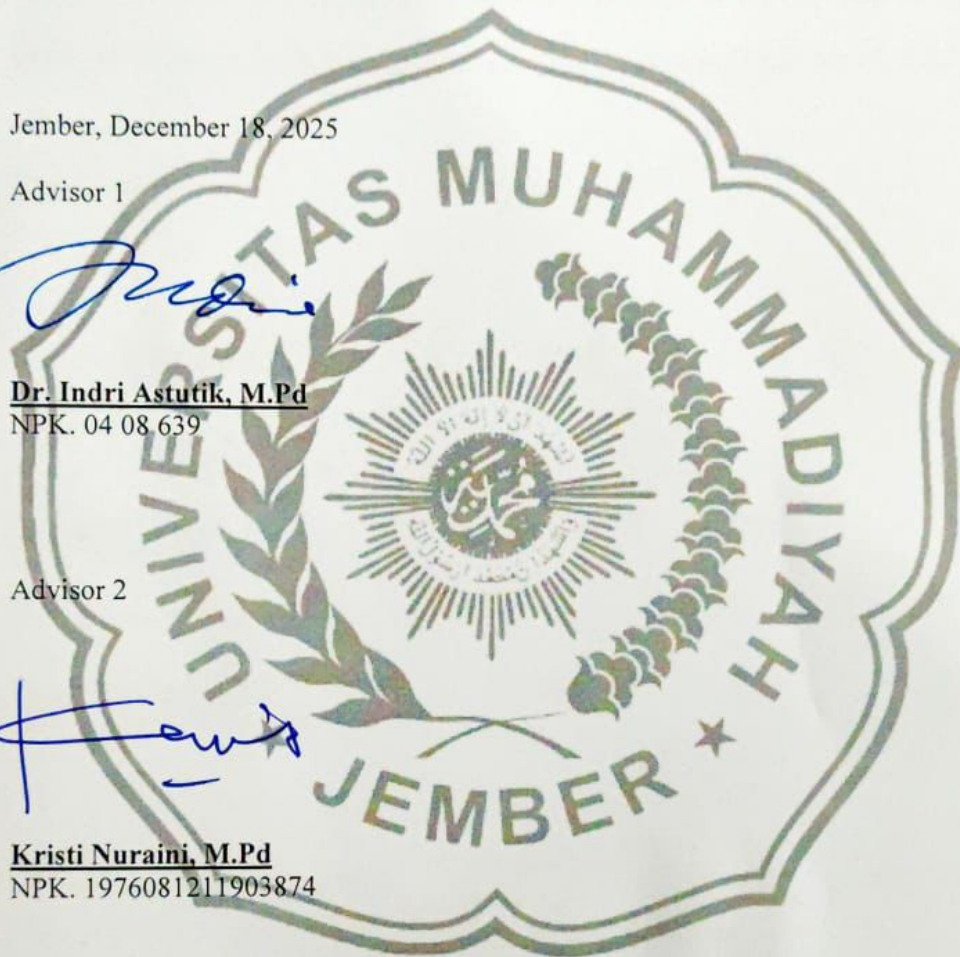 Jember, December 18, 2025
Advisor 1
Dr. Indri Astutik, M.Pd
NPK. 04 08 639
Advisor 2
Kristi Nuraini, M.Pd
NPK. 1976081211903874
UNIVERSITAS MUHAMMADIYAH
JEMBER